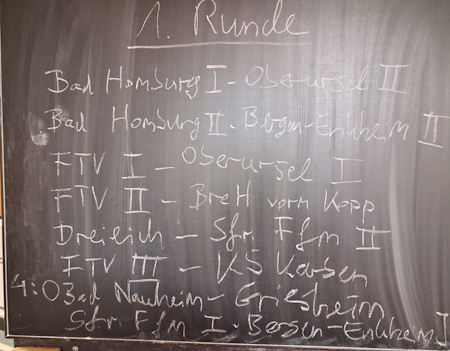 1. Runde
Bad Homburg I - Oberursel III
Bad Homburg II - Bergen-Enkheim II
FTV I - Oberursel I
FTV II - Brett vorm Kopp
Dreieich - Sfr. Ffm II
FTV III - KS Karben
4:0 Bad Nauheim - Griesheim
Sfr. Ffm I - Bergen-Enkheim I